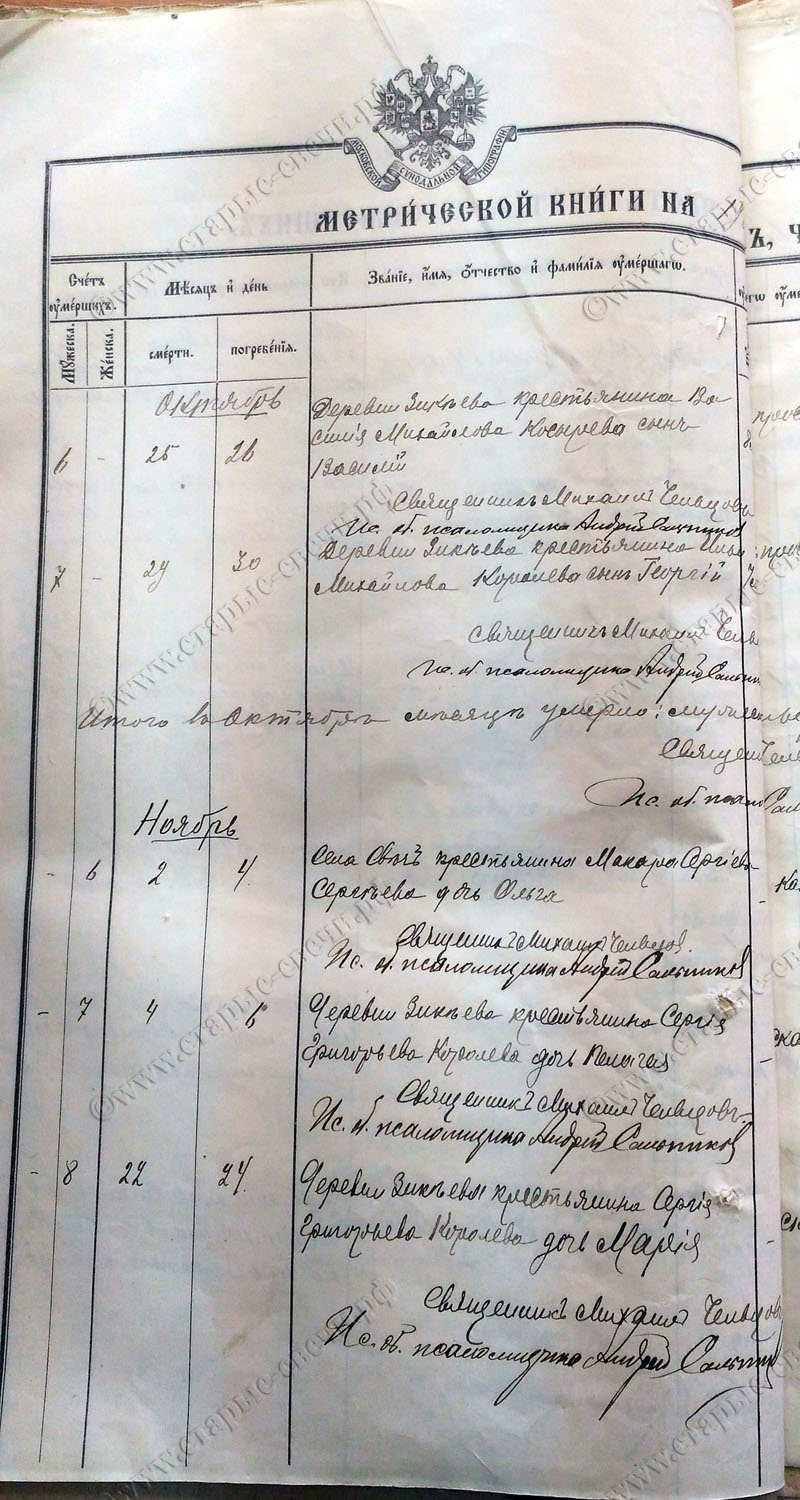 МОСКОВСКОЙ СѴНОДАЛЬНОЙ ТИПОГРАФІИ
МЕТРИ́ЧЕСКОЙ КНИ́ГИ НА
Ъ, Ч
Сче́тъ ᲂу҆ме́ршихъ.
Мѣ́сяцъ и҆ де́нь
Зва́ніе, и҆́мя, ѻ҆́тчество и҆ фами́лія ᲂу҆ме́ршагѡ.
Мꙋ́жеска.
Же́нска.
сме́рти.
погребе́нія.
Октябрь
Деревни Зикѣева крестьянина Ва
6 - 25 26
силія Михайлова Косырева сынъ
Василій
Священникъ Михаилъ Чельцовъ
Ис. об. псаломщика Андрей Сальников
7 - 29 30
Деревни Зикѣева крестьянина Ильи
Михайлова Королева сынъ Георгій
Священникъ Михаилъ Чель
Ис. об. псаломщика Андрей Сальн
Итого въ Октябрѣ мѣсяцѣ умерло:
Священ
Ис. об. псало
Ноябрь
- 6 2 4
Села крестьянина Макара Сергіева
Сергѣева дочь Ольга
Священникъ Михаилъ Чельцов.
Ис. об. псаломщика Андрей Сальников
- 7 4 6
Деревни Зикѣева крестьянина Сергія
Григорьева Королева дочь Пелагея
Священникъ Михаилъ Чельцовъ
Ис. об. псаломщика Андрей Сальников
- 8 22 24
Деревни Зикѣева крестьянина Сергія
Григорьева Королева дочь Марія
Священникъ Михаилъ Чельцовъ
Ис. об. псаломщика Андрей Сальник
©www.старые-свечи.рф